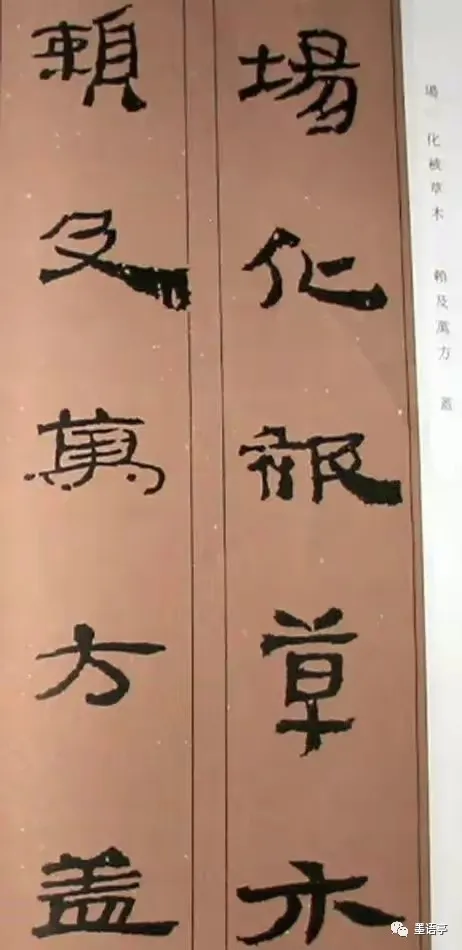 場化被草木
賴及萬方盖
場 化被草木 賴及萬方 蓋
墨语亭